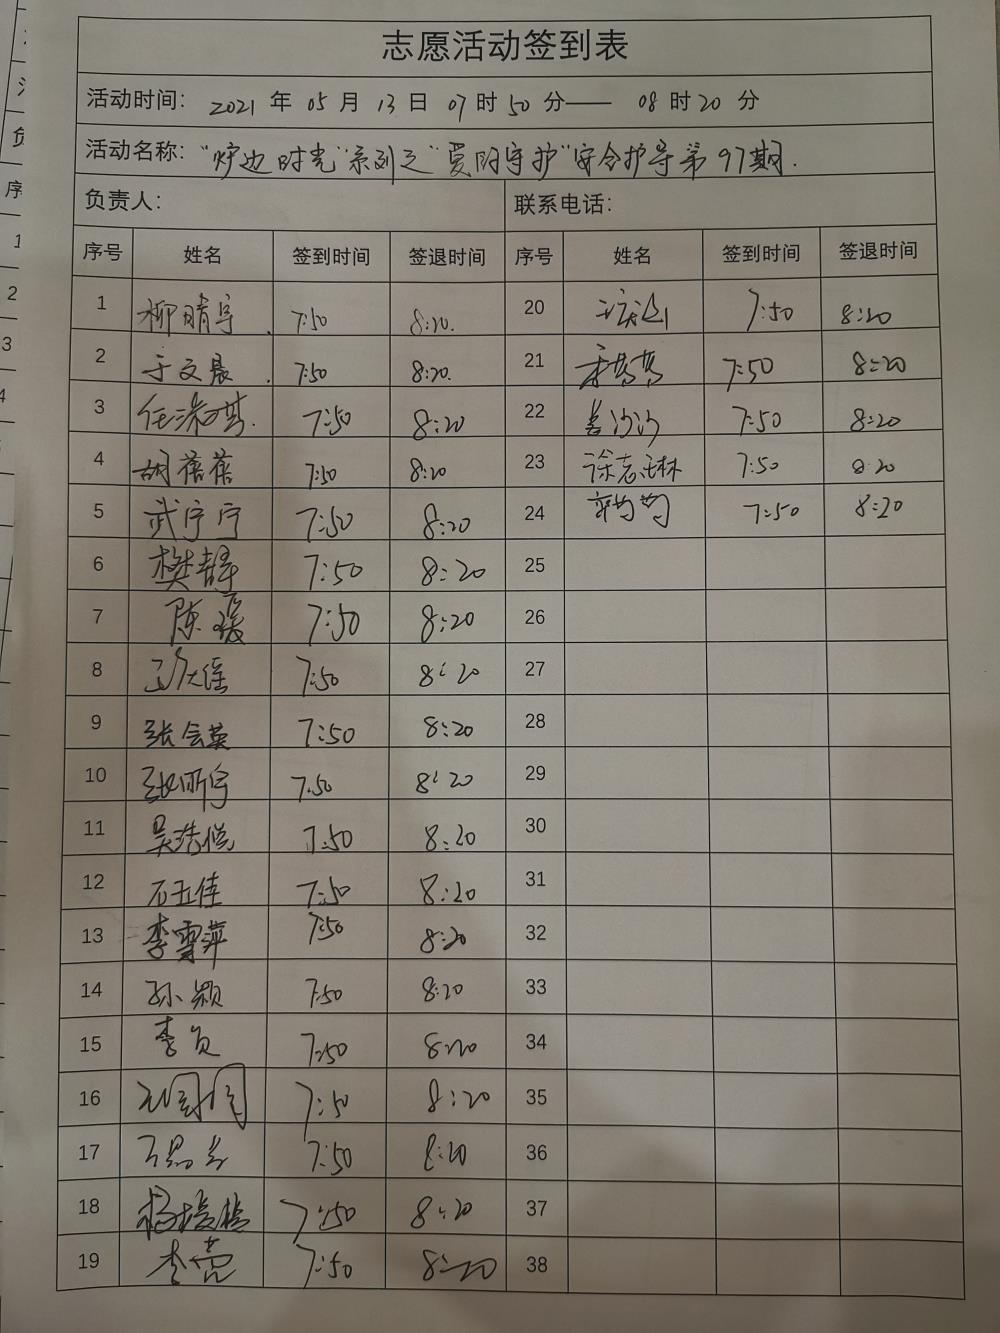 志愿活动签到表
活动时间: 2021 年 05 月 13 日 07 时 50 分—— 08 时 20 分
活动名称: "炉边时光"系列之"夏阳守护"安全护导第97期.
负责人: 联系电话:
序号 姓名 签到时间 签退时间 序号 姓名 签到时间 签退时间
1 柳晴宇 7:50 8:20. 20 7:50 8:20
2 于文晨 7:50 8:20. 21 7:50 8:20
3 任 7:50 8:20 22 姜沙沙 7:50 8:20
4 胡蓓蓓 7:50 8:20 23 徐志琳 7:50 8:20
5 武宁宁 7:50 8:20 24 郭均均 7:50 8:20
6 樊静 7:50 8:20 25
7 陈瑗 7:50 8:20 26
8 7:50 8:20 27
9 张会英 7:50 8:20 28
10 张昕宇 7:50 8:20 29
11 吴浩悦 7:50 8:20 30
12 石玉佳 7:50 8:20 31
13 李雪萍 7:50 8:20 32
14 孙颖 7:50 8:20 33
15 李贞 7:50 8:20 34
16 7:50 8:20 35
17 7:50 8:20 36
18 杨 7:50 8:20 37
19 李亮 7:50 8:20 38